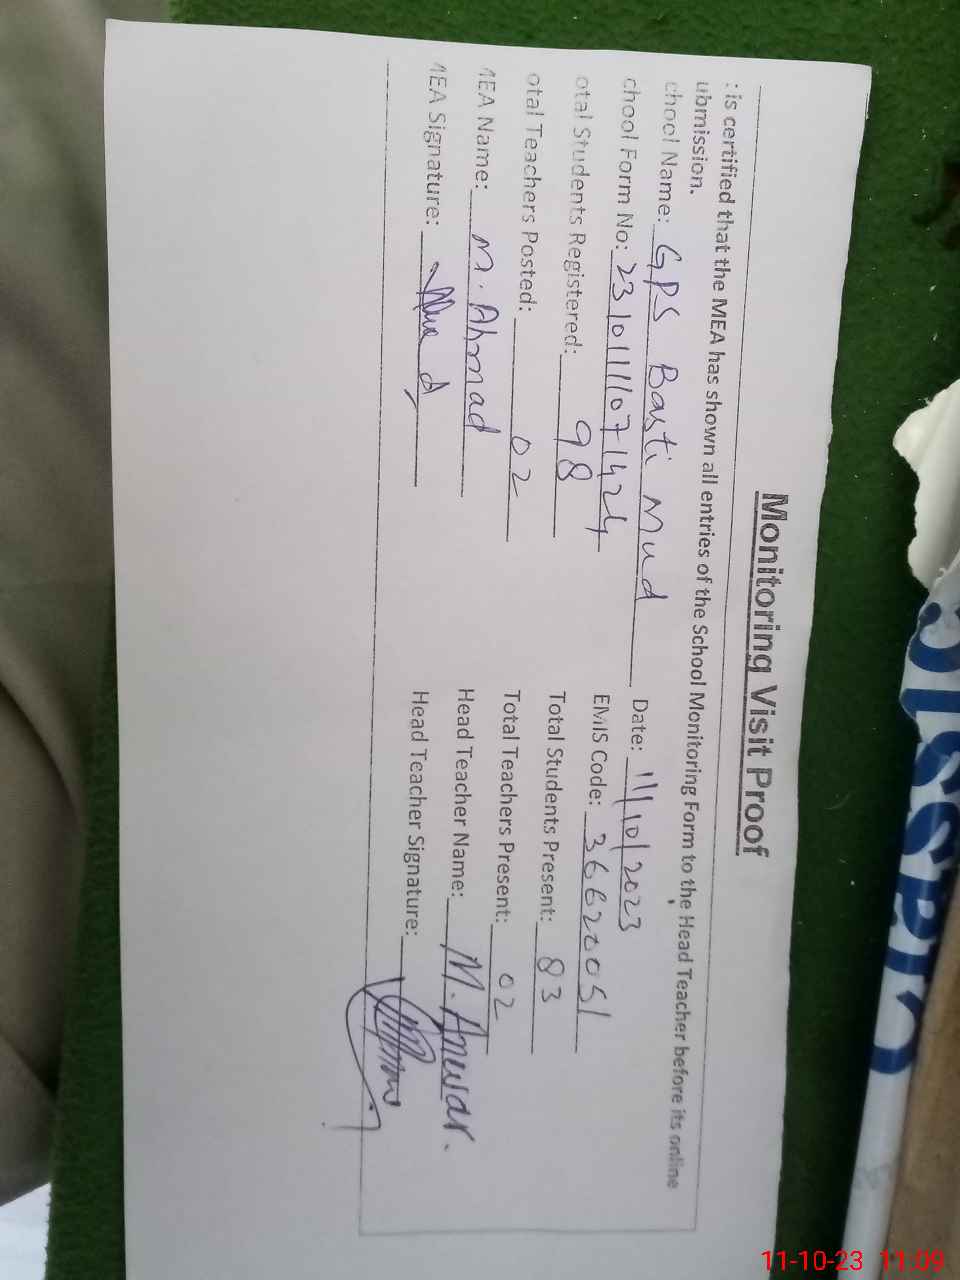 Monitoring Visit Proof
: is certified that the MEA has shown all entries of the School Monitoring Form to the Head Teacher before its online
ubmission.
chool Name: GPS Basti Mud Date: 11/10/2023
chool Form No: 2310111071424 EMIS Code: 36620051
otal Students Registered: 98 Total Students Present: 83
otal Teachers Posted: 02 Total Teachers Present: 02
MEA Name: M. Ahmad Head Teacher Name: M. Anwar.
MEA Signature: Head Teacher Signature:
11-10-23 11:09